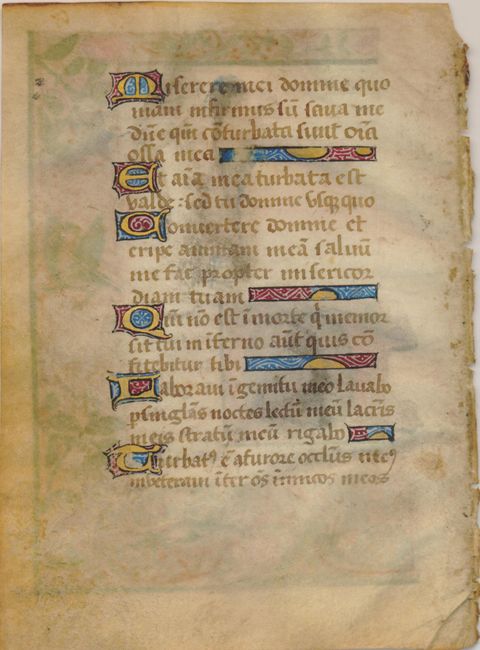 Miserere mei domine quo
niam infirmus sū sana me
dn̄e qm̄ cōturbata sunt oīa
ossa mea
Et aīa mea turbata est
valde: sed tu domine vsq̄quo
Conuertere domine et
eripe animam meā saluū
me fac propter misericor
diam tuam
Qm̄ nō est ī morte q̄ memor
sit tui in iferno aūt quis cō
fitebitur tibi
Laboraui ī gemitu meo lauabo
p̱ singl̄as noctes lectū meū lacr̄is
meis stratū meū rigabo
Turbatꝰ ē a furore ocl̄us meꝰ
inueteraui īter oēs īimicos meos